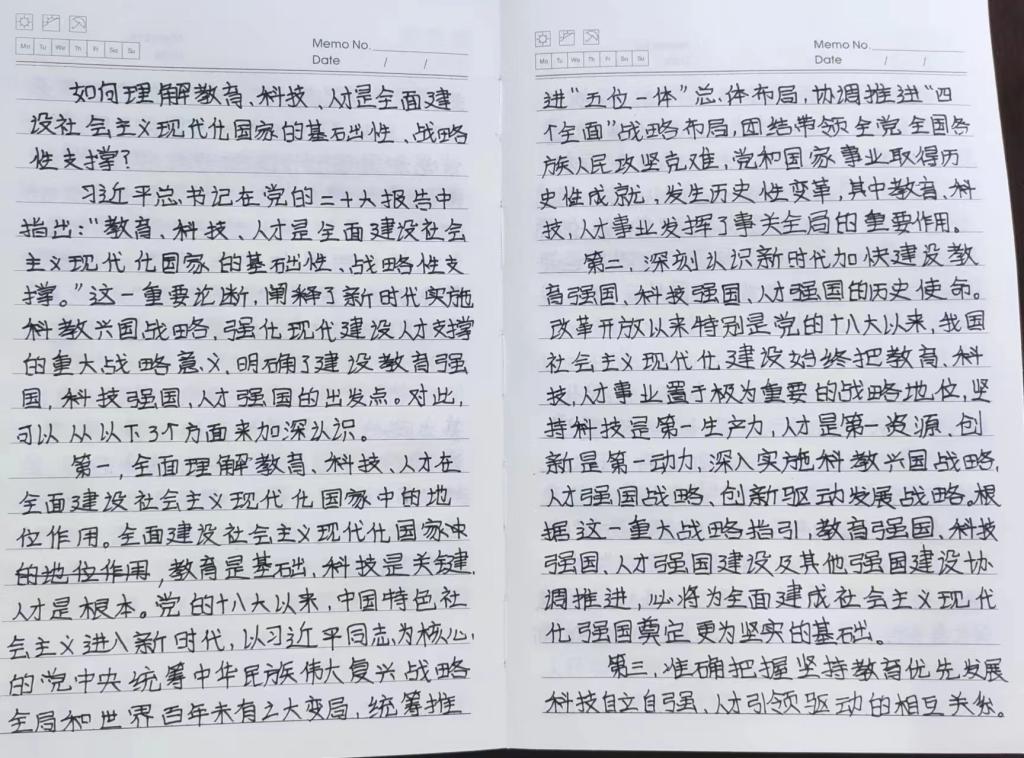 Mo Tu We Th Fr Sa Su
Memo No.
Date / /
如何理解教育、科技、人才是全面建
设社会主义现代化国家的基础性、战略
性支撑?
习近平总书记在党的二十大报告中
指出:“教育、科技、人才是全面建设社会
主义现代化国家的基础性、战略性支
撑。”这一重要论断,阐释了新时代实施
科教兴国战略,强化现代建设人才支撑
的重大战略意义,明确了建设教育强
国,科技强国,人才强国的出发点。对此,
可以从以下3个方面来加深认识。
第一,全面理解教育、科技、人才在
全面建设社会主义现代化国家中的地
位作用。全面建设社会主义现代化国家中
的地位作用,教育是基础,科技是关键,
人才是根本。党的十八大以来,中国特色社
会主义进入新时代,以习近平同志为核心
的党中央统筹中华民族伟大复兴战略
全局和世界百年未有之大变局,统筹推
Mo Tu We Th Fr Sa Su
Memo No.
Date / /
进“五位一体”总体布局,协调推进“四
个全面”战略布局,团结带领全党全国各
族人民攻坚克难,党和国家事业取得历
史性成就,发生历史性变革,其中教育、科
技,人才事业发挥了事关全局的重要作用。
第二,深刻认识新时代加快建设教
育强国、科技强国、人才强国的历史使命。
改革开放以来特别是党的十八大以来,我国
社会主义现代化建设始终把教育、科
技,人才事业置于极为重要的战略地位,坚
持科技是第一生产力,人才是第一资源、创
新是第一动力,深入实施科教兴国战略,
人才强国战略、创新驱动发展战略。根
据这一重大战略指引,教育强国、科技
强国、人才强国建设及其他强国建设协
调推进,必将为全面建成社会主义现代
化强国奠定更为坚实的基础。
第三,准确把握坚持教育优先发展
科技自立自强、人才引领驱动的相互关系。